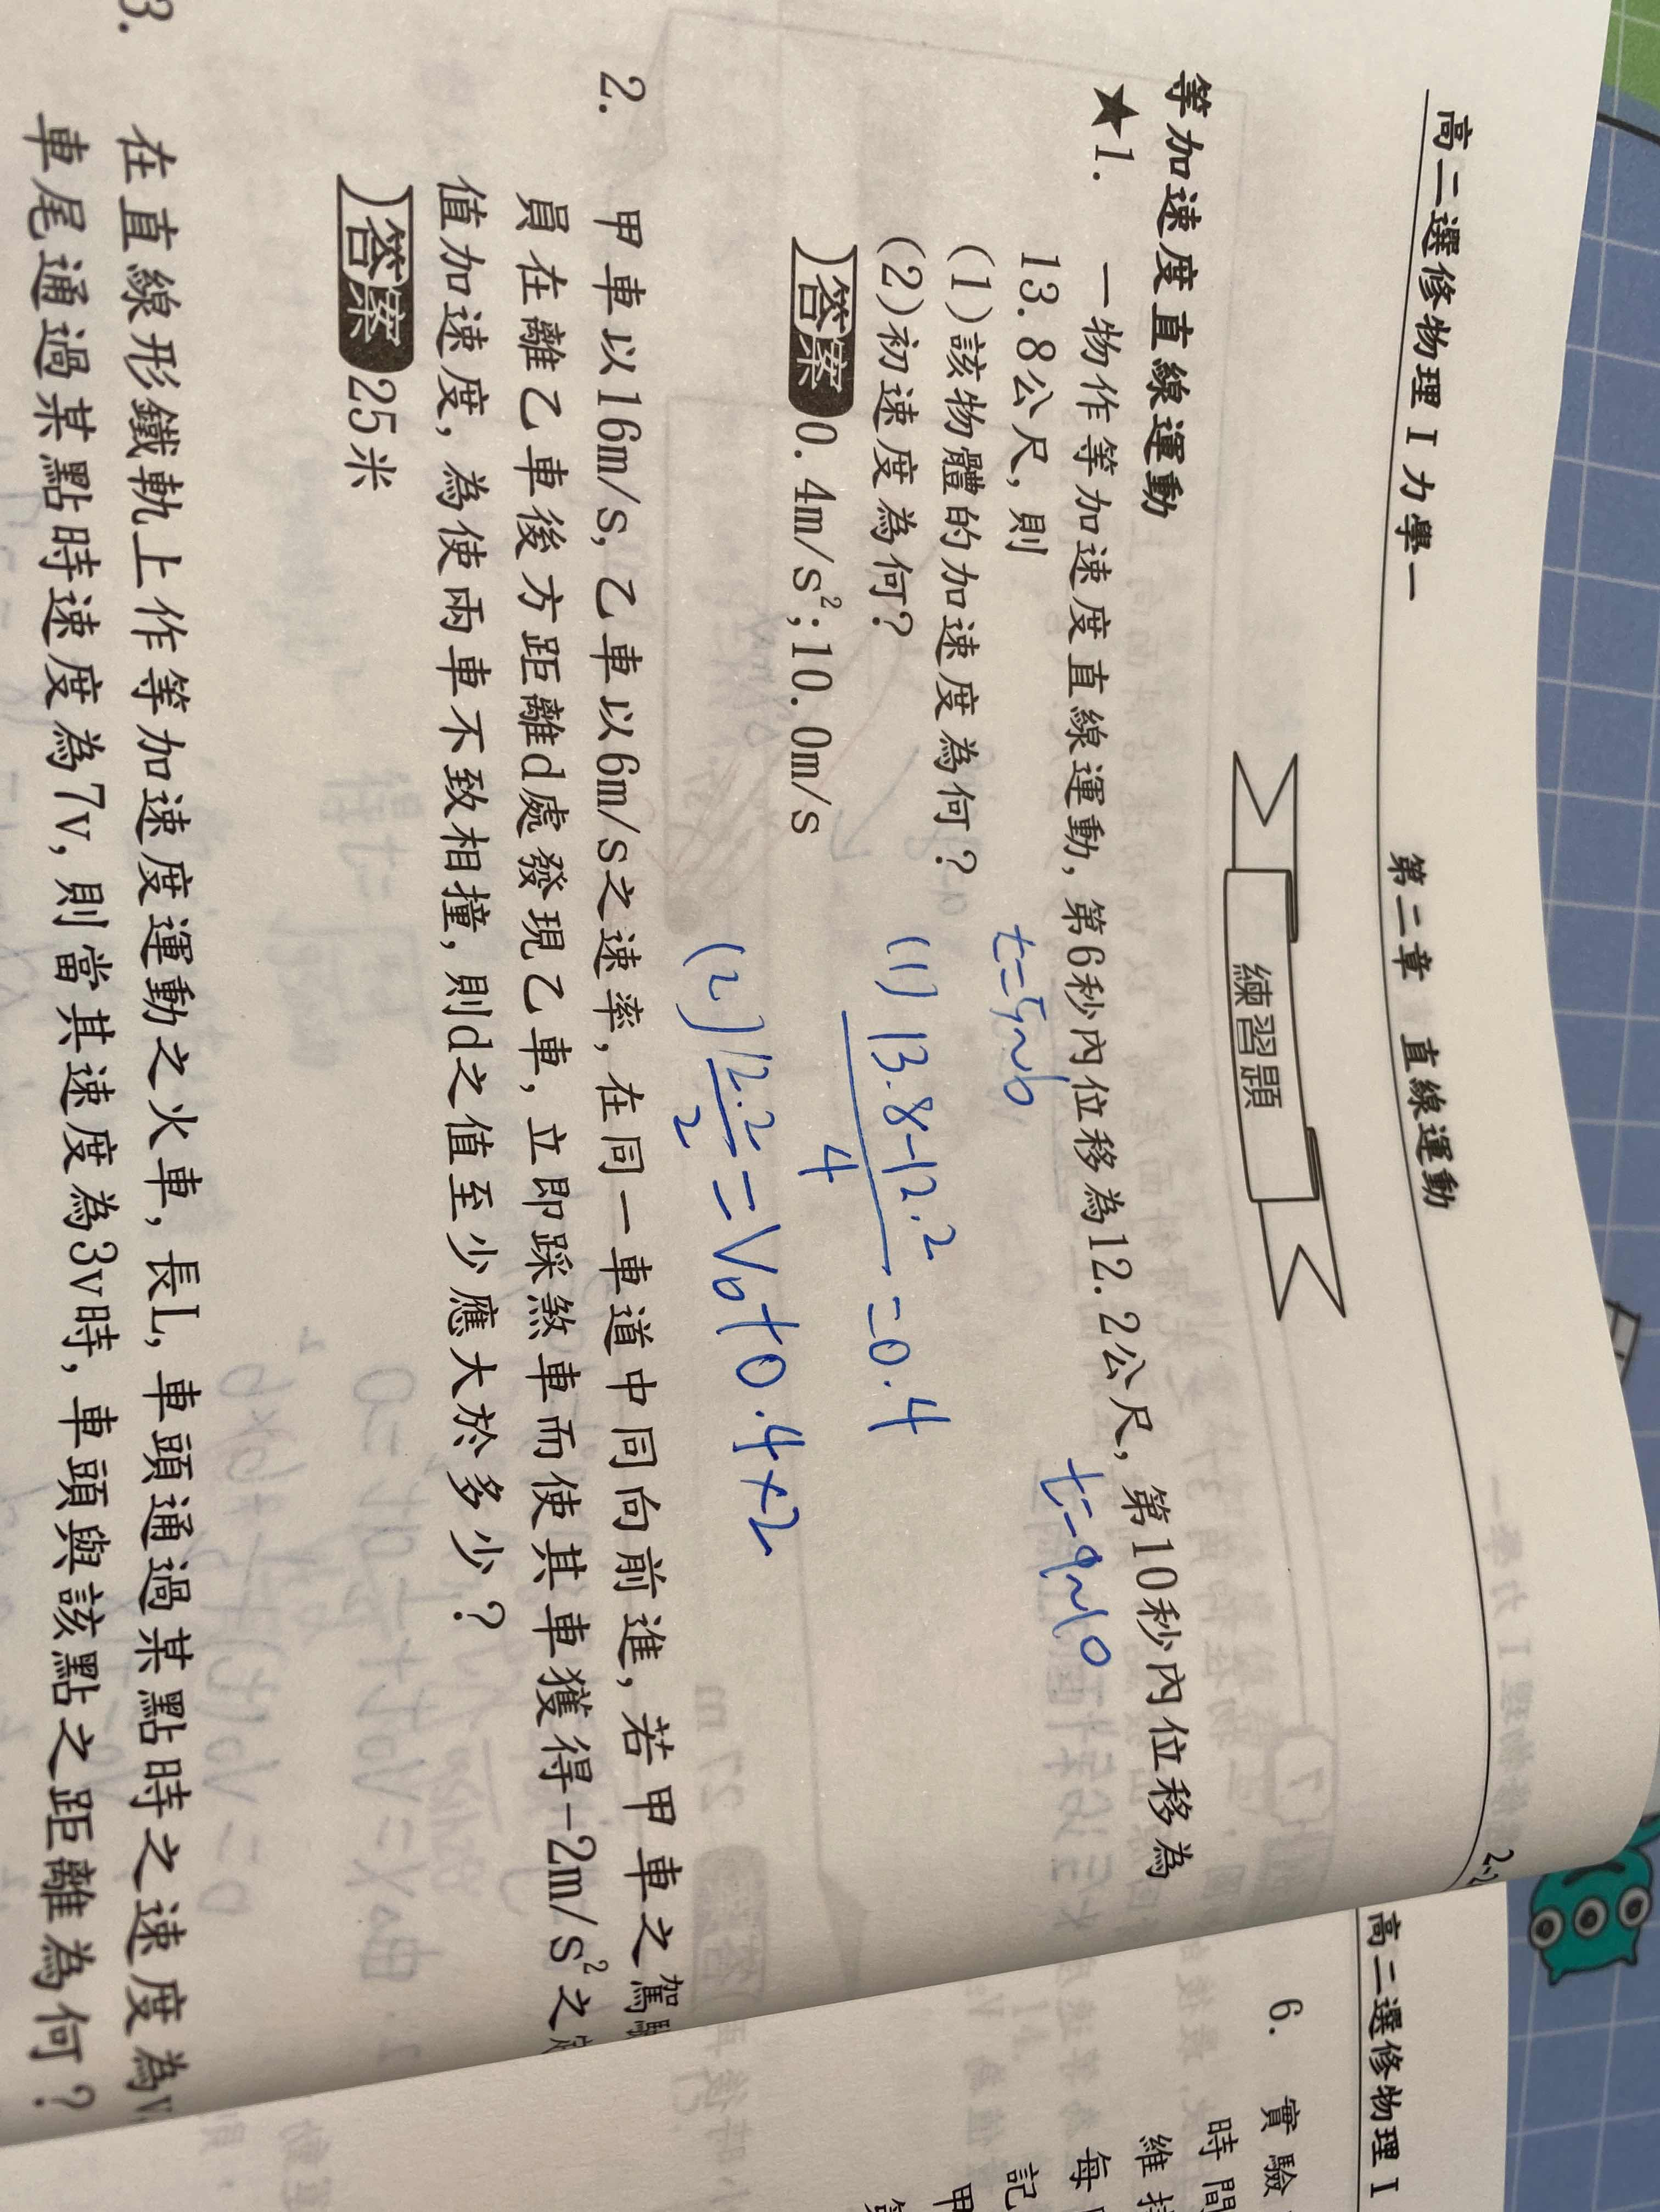 高二選修物理Ⅰ力學一 第二章 直線運動
練習題
等加速度直線運動
★1. 一物作等加速度直線運動,第6秒內位移為12.2公尺,第10秒內位移為
t=5~6 t=9~10
13.8公尺,則
(1)該物體的加速度為何?
(2)初速度為何?
(1) 13.8-12.2
4
=0.4
答案 0.4m/s²;10.0m/s
(2) 12.2
2
=V₀+0.4×2
2. 甲車以16m/s,乙車以6m/s之速率,在同一車道中同向前進,若甲車之駕駛
員在離乙車後方距離d處發現乙車,立即踩煞車而使其車獲得-2m/s²之
值加速度,為使兩車不致相撞,則d之值至少應大於多少?
答案 25米
3. 在直線形鐵軌上作等加速度運動之火車,長L,車頭通過某點時之速度為v
車尾通過某點時速度為7v,則當其速度為3v時,車頭與該點之距離為何?
高二選修物理Ⅰ
6. 實驗
時間
每
記
甲